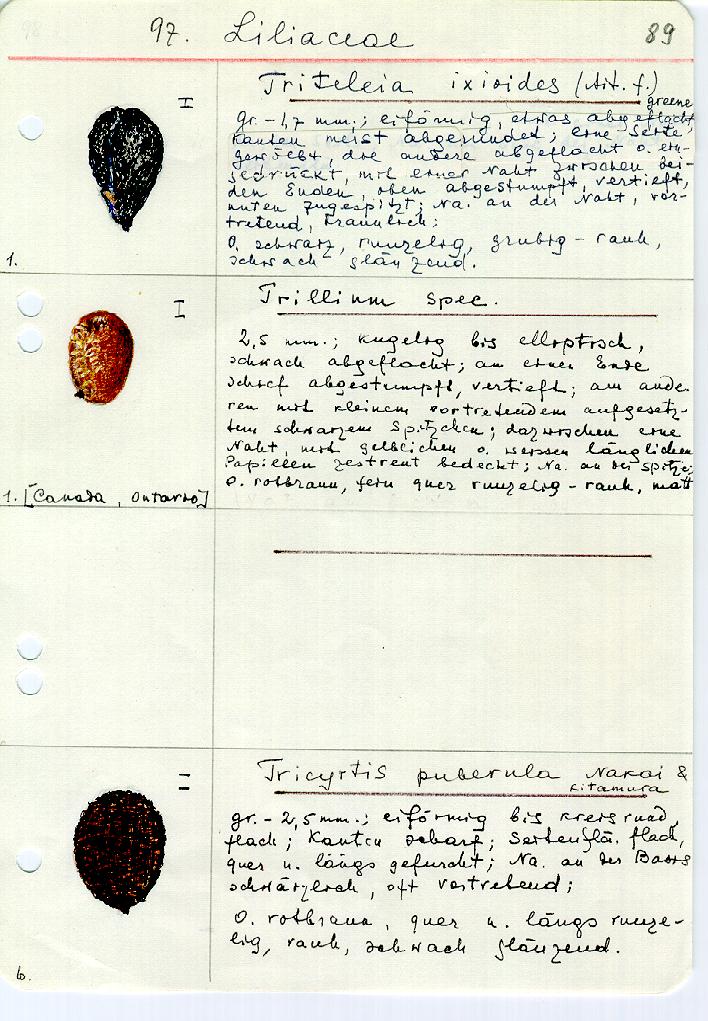 97. Liliaceae 89
Triteleia ixioides (Ait. f.)
greene
gr. - 1,7 mm.; eiförmig, etwas abgeflacht
Kanten meist abgerundet; eine Seite
gewölbt, die andere abgeflacht o. ein-
gedrückt, mit einer Naht zwischen bei-
den Enden, oben abgestumpft, vertieft,
unten zugespitzt; Na. an der Naht, vor-
tretend, bräunlich;
O. schwarz, runzelig, grubig - rauh,
schwach glänzend.
1.
Trillium spec.
2,5 mm.; kugelig bis elliptisch,
schwach abgeflacht; am einen Ende
schief abgestumpft, vertieft; am ande-
ren mit kleinem vortretendem aufgesetz-
tem schwarzem Spitzchen; dazwischen eine
Naht, mit gelblichen o. weissen länglichen
Papillen zestreut bedeckt; Na. an der Spitze;
O. rotbraun, fein quer runzelig - rauh, matt
1. [Canada, Ontario]
Tricyrtis puberula Nakai &
Kitamura
gr. - 2,5 mm.; eiförmig bis kreisrund,
flach; Kanten scharf; Seitenflä. flach,
quer u. längs gefurcht; Na. an der Basis
schwärzlich, oft vortretend;
O. rotbraun, quer u. längs runze-
lig, rauh, schwach glänzend.
6.